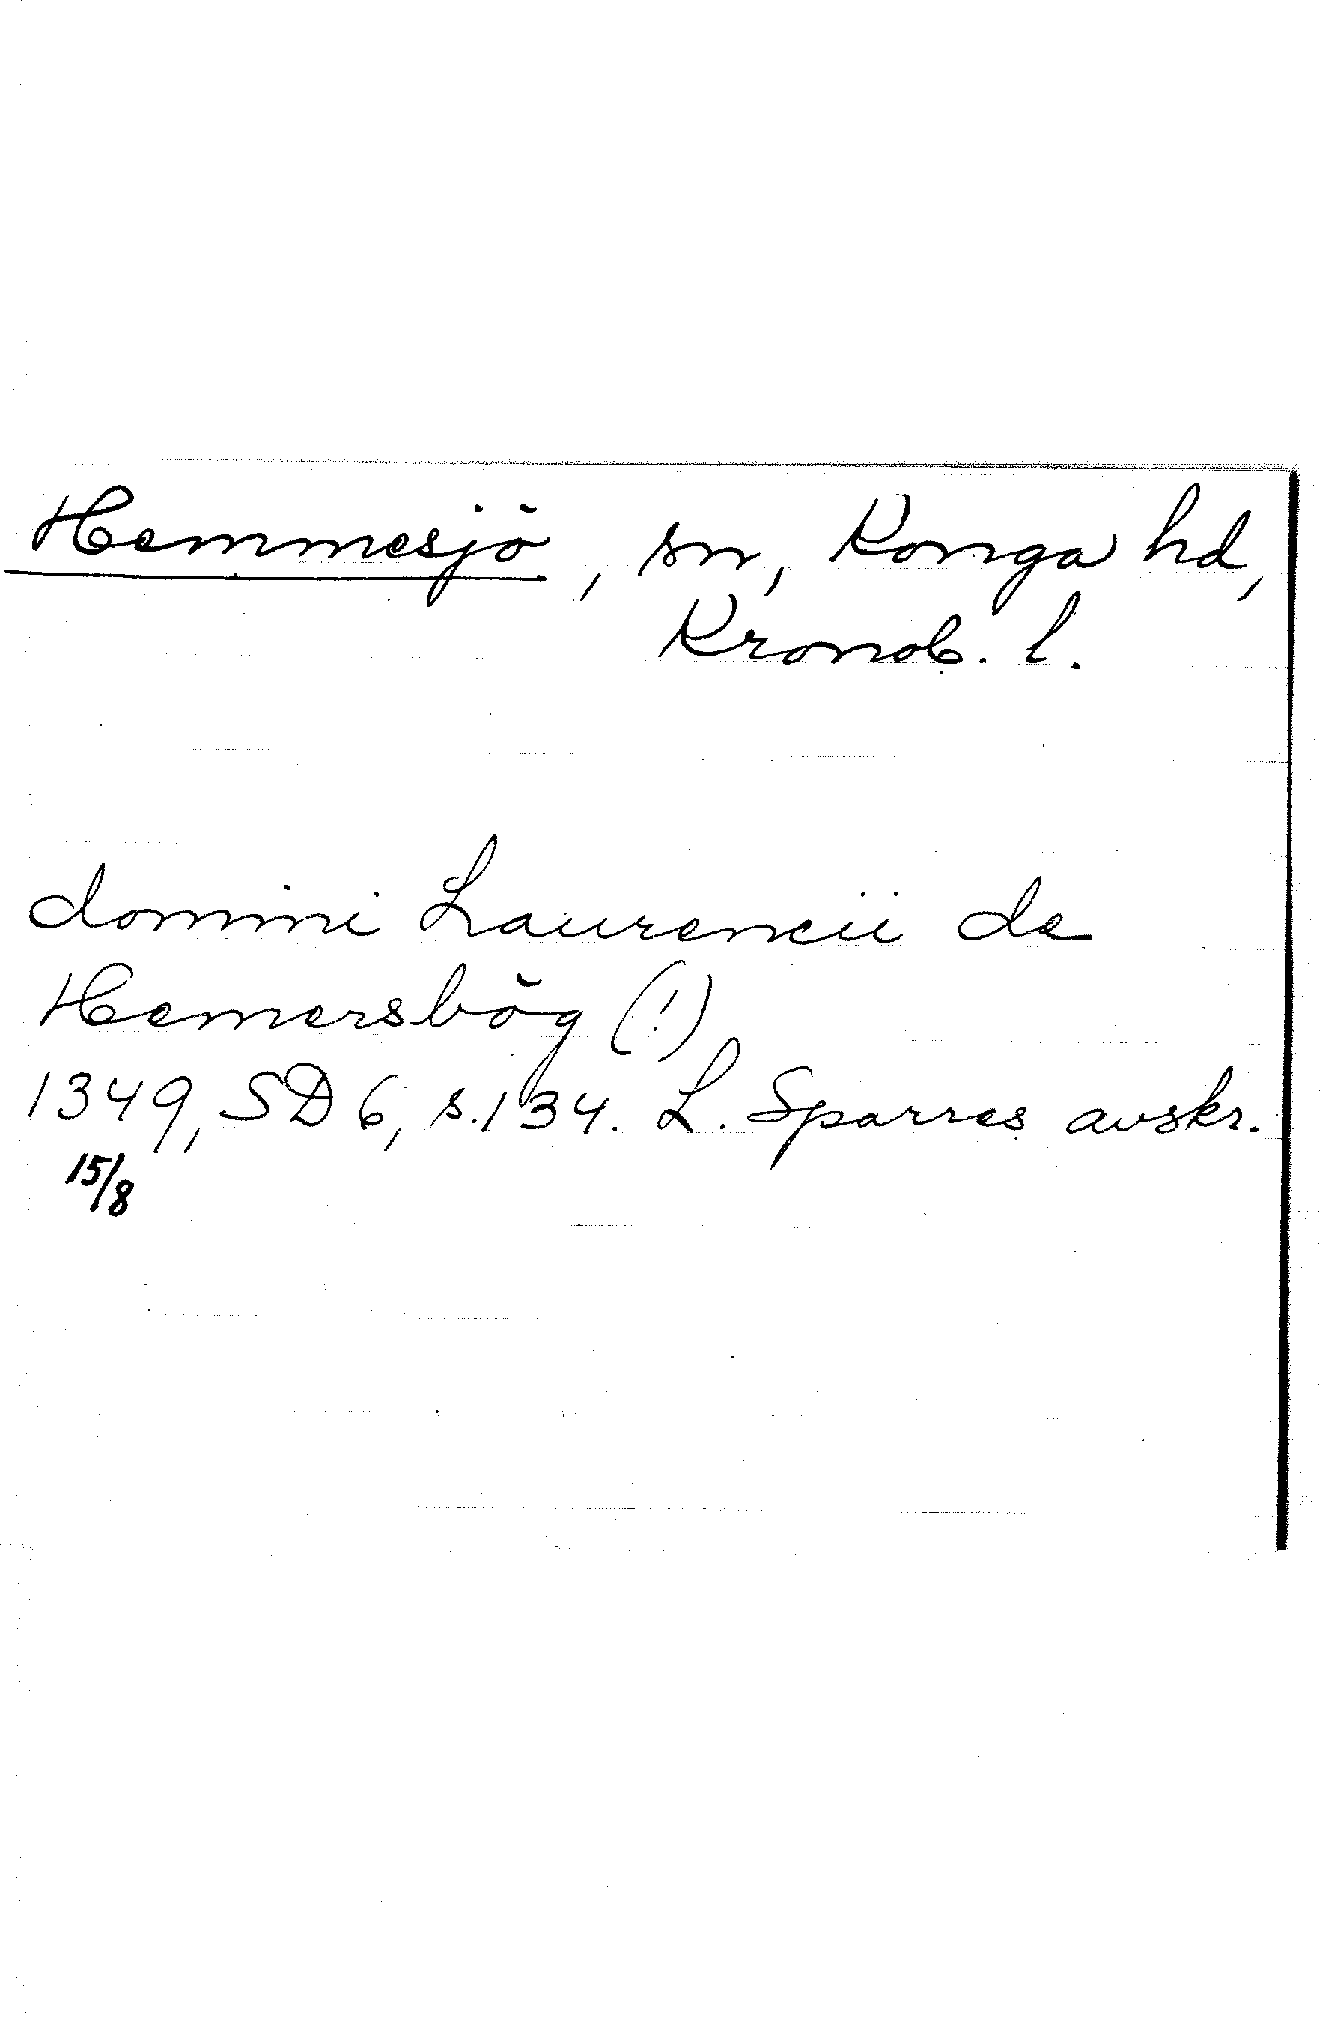 Hemmesjö, sn, Konga hd,
Kronob. l.
domini Laurencii de
Hemersbög (!)
1349, SD 6, s. 134. L. Sparres avskr.
15/8